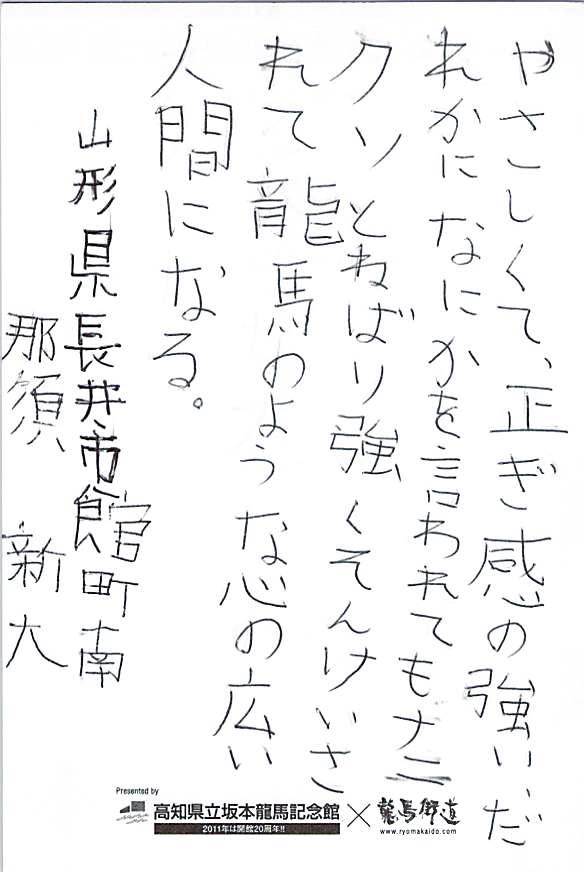 やさしくて、正ぎ感の強い、だ
れかになにかを言われてもナニ
クソとねばり強くそんけいさ
れて龍馬のような心の広い
人間になる。
山形県長井市館町南
那須 新大
Presented by
高知県立坂本龍馬記念館×龍馬街道
2011年は開館20周年!!
www.ryomakaido.com